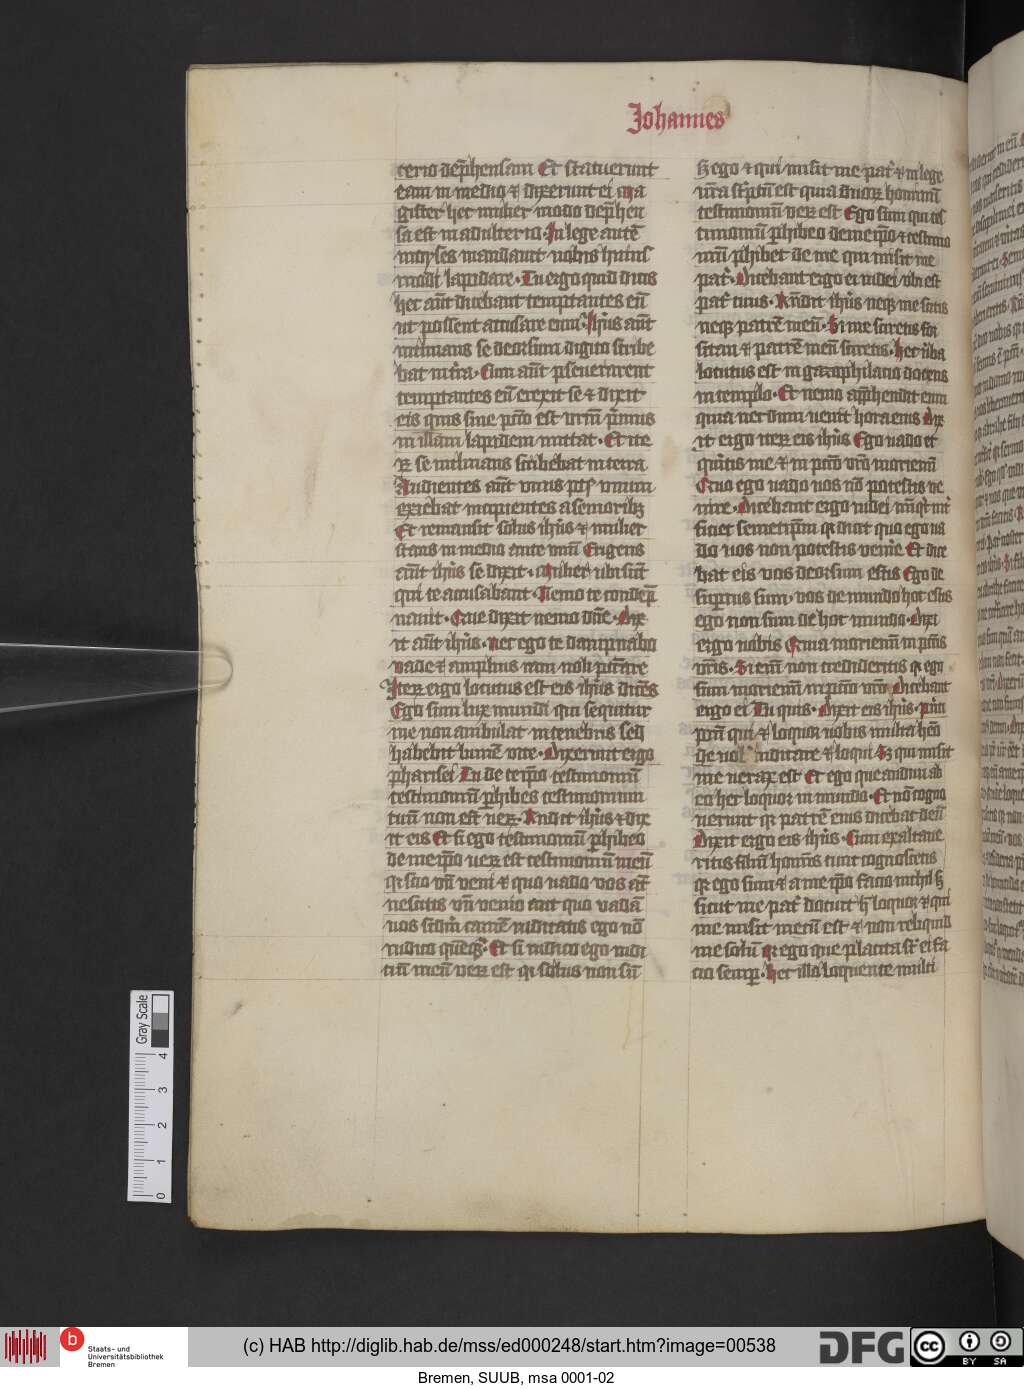 Johannes
terio dep̄hensam Et statuerunt
eam in medio ⁊ dixerunt ei ma
gister hec mulier modo dep̄hen
sa est in adulterio. In lege autē
moyses mandauit nobis huius
modi lapidare. Tu ergo quid dicis
hec aūt dicebant temptantes eū
ut possent accusare eum. ih̄us aūt
inclinans se deorsum digito scribe
bat in t̄ra. Cum aūt p̱seuerarent
temptantes eū erexit se ⁊ dixit
eis quis sine pcc̄o est vr̄m p̄mus
in illam lapidem mittat. Et ite
rꝝ se inclinans scribebat in terra
Audientes aūt vnus pꝰ vnum
exiebat incipientes a senioribꝫ
Et remansit solus ih̄us ⁊ mulier
stans in medio ante illū Erigens
aūt ih̄us se dixit. mulier ubi sūt
qui te accusabant. Nemo te condep̄
nauit. Que dixit nemo dn̄e. Dix
it aūt ih̄us. Nec ego te dampnabo
vade ⁊ amplius iam noli peccare
Iterꝝ ergo locutus est eis ih̄us dicēs
Ego sum lux mundi qui sequitur
me non ambulat in tenebris sed
habebit lumē vite. Dixerunt ergo
pharisei Tu de teip̄o testimoniū
testimoniū p̱hibes testimonium
tuū non est verꝝ. Rn̄dit ih̄us ⁊ dix
it eis Et si ego testimoniū p̱hibeo
de meip̄o verꝝ est testimoniū meū
qꝛ scio vn̄ veni ⁊ quo vado vos aūt
nescitis vn̄ venio aut quo vadā
vos scdm̄ carnē iudicatis ego nō
iudico quēqꝫ. Et si iudico ego iudi
ciū meū verꝝ est qꝛ solus non sū
sꝫ ego ⁊ qui misit me pat̄ ⁊ in lege
vr̄a sc̄ptū est quia duoꝝ hominū
testimoniū verꝝ est Ego sum qui tes
timoniū p̱hibeo de meip̄o ⁊ testimo
niū p̱hibet de me qui misit me
pat̄. Dicebant ergo ei iudei vbi est
pat̄ tuus. Rn̄dit ih̄us neqꝫ me scitis
neqꝫ patrē meū. Si me sciretis for
sitan ⁊ patrē meū sciretis. Hec v̄ba
locutus est in gazophilacio docens
in templo. Et nemo app̄hendit eum
quia necdum venit hora eius Dix
it ergo iterꝝ eis ih̄us Ego vado et
queritis me ⁊ in pcc̄o vr̄o moriemī
Quo ego vado vos nō potestis ve
nire. Dicebant ergo iudei nūqͥd int̄
ficiet semetip̄m qꝛ dicit quo ego va
do vos non potestis venire Et dice
bat eis vos deorsum estis Ego de
sup̱nus sum. vos de mundo hoc estis
ego non sum de hoc mundo. Dixi
ergo vobis Quia moriemī in pcc̄is
vr̄is. Si enī non credideritis qꝛ ego
sum moriemī in pcc̄o vr̄o Dicebant
ergo ei Tu quis. Dixit eis ih̄us. prin
piū qui ⁊ loquor vobis multa heo
de iudicare ⁊ loqui Sꝫ qui misit
me verax est Et ego que audiui ab
eo hec loquor in mundo. Et nō cogno
uerunt qꝛ patrē eius dicebat deū
Dixit ergo eis ih̄us. Cum exaltaue
ritis filiū hominis tunc cognoscetis
qꝛ ego sum ⁊ a me ip̄o facio nichil sꝫ
sicut me pat̄ docuit h̄ loquor ⁊ qui
me misit mecū est ⁊ non reliquid
me solū qꝛ ego que placita sūt ei fa
cio semp̱. Hec illo loquente multi
Gray Scale
4
3
2
1
0
b
Staats- und
Universitätsbibliothek
Bremen
(c) HAB http://diglib.hab.de/mss/ed000248/start.htm?image=00538
DFG
cc BY SA
Bremen, SUUB, msa 0001-02